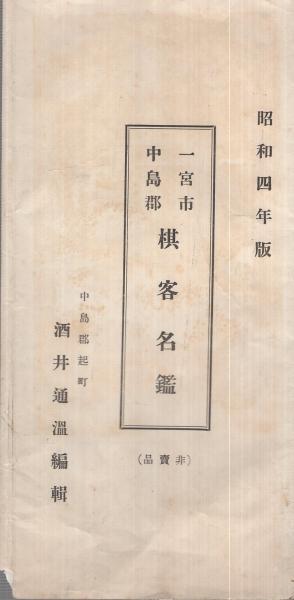 昭和四年版
一宮市
中島郡
棋客名鑑
(非賣品)
中島郡起町
酒井通溫編輯